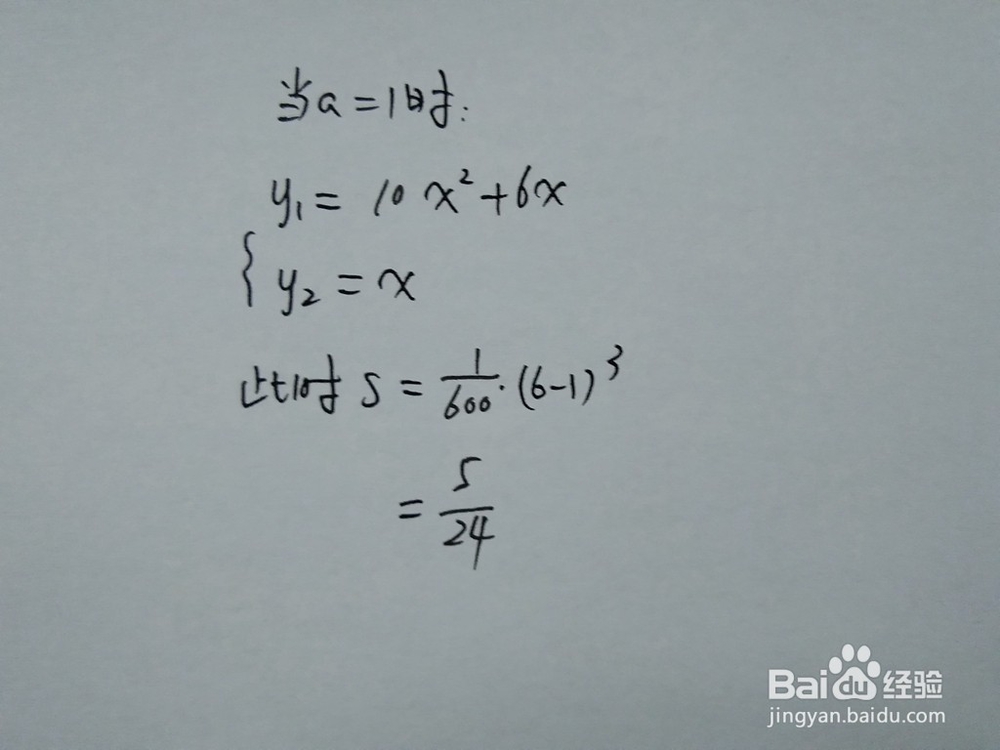 当a=1时:
y₁= 10 x²+6x
{ y₂ = x
此时 S = 1/600·(6-1)³
= 5/24
Bai du 经验
jingyan.baidu.com